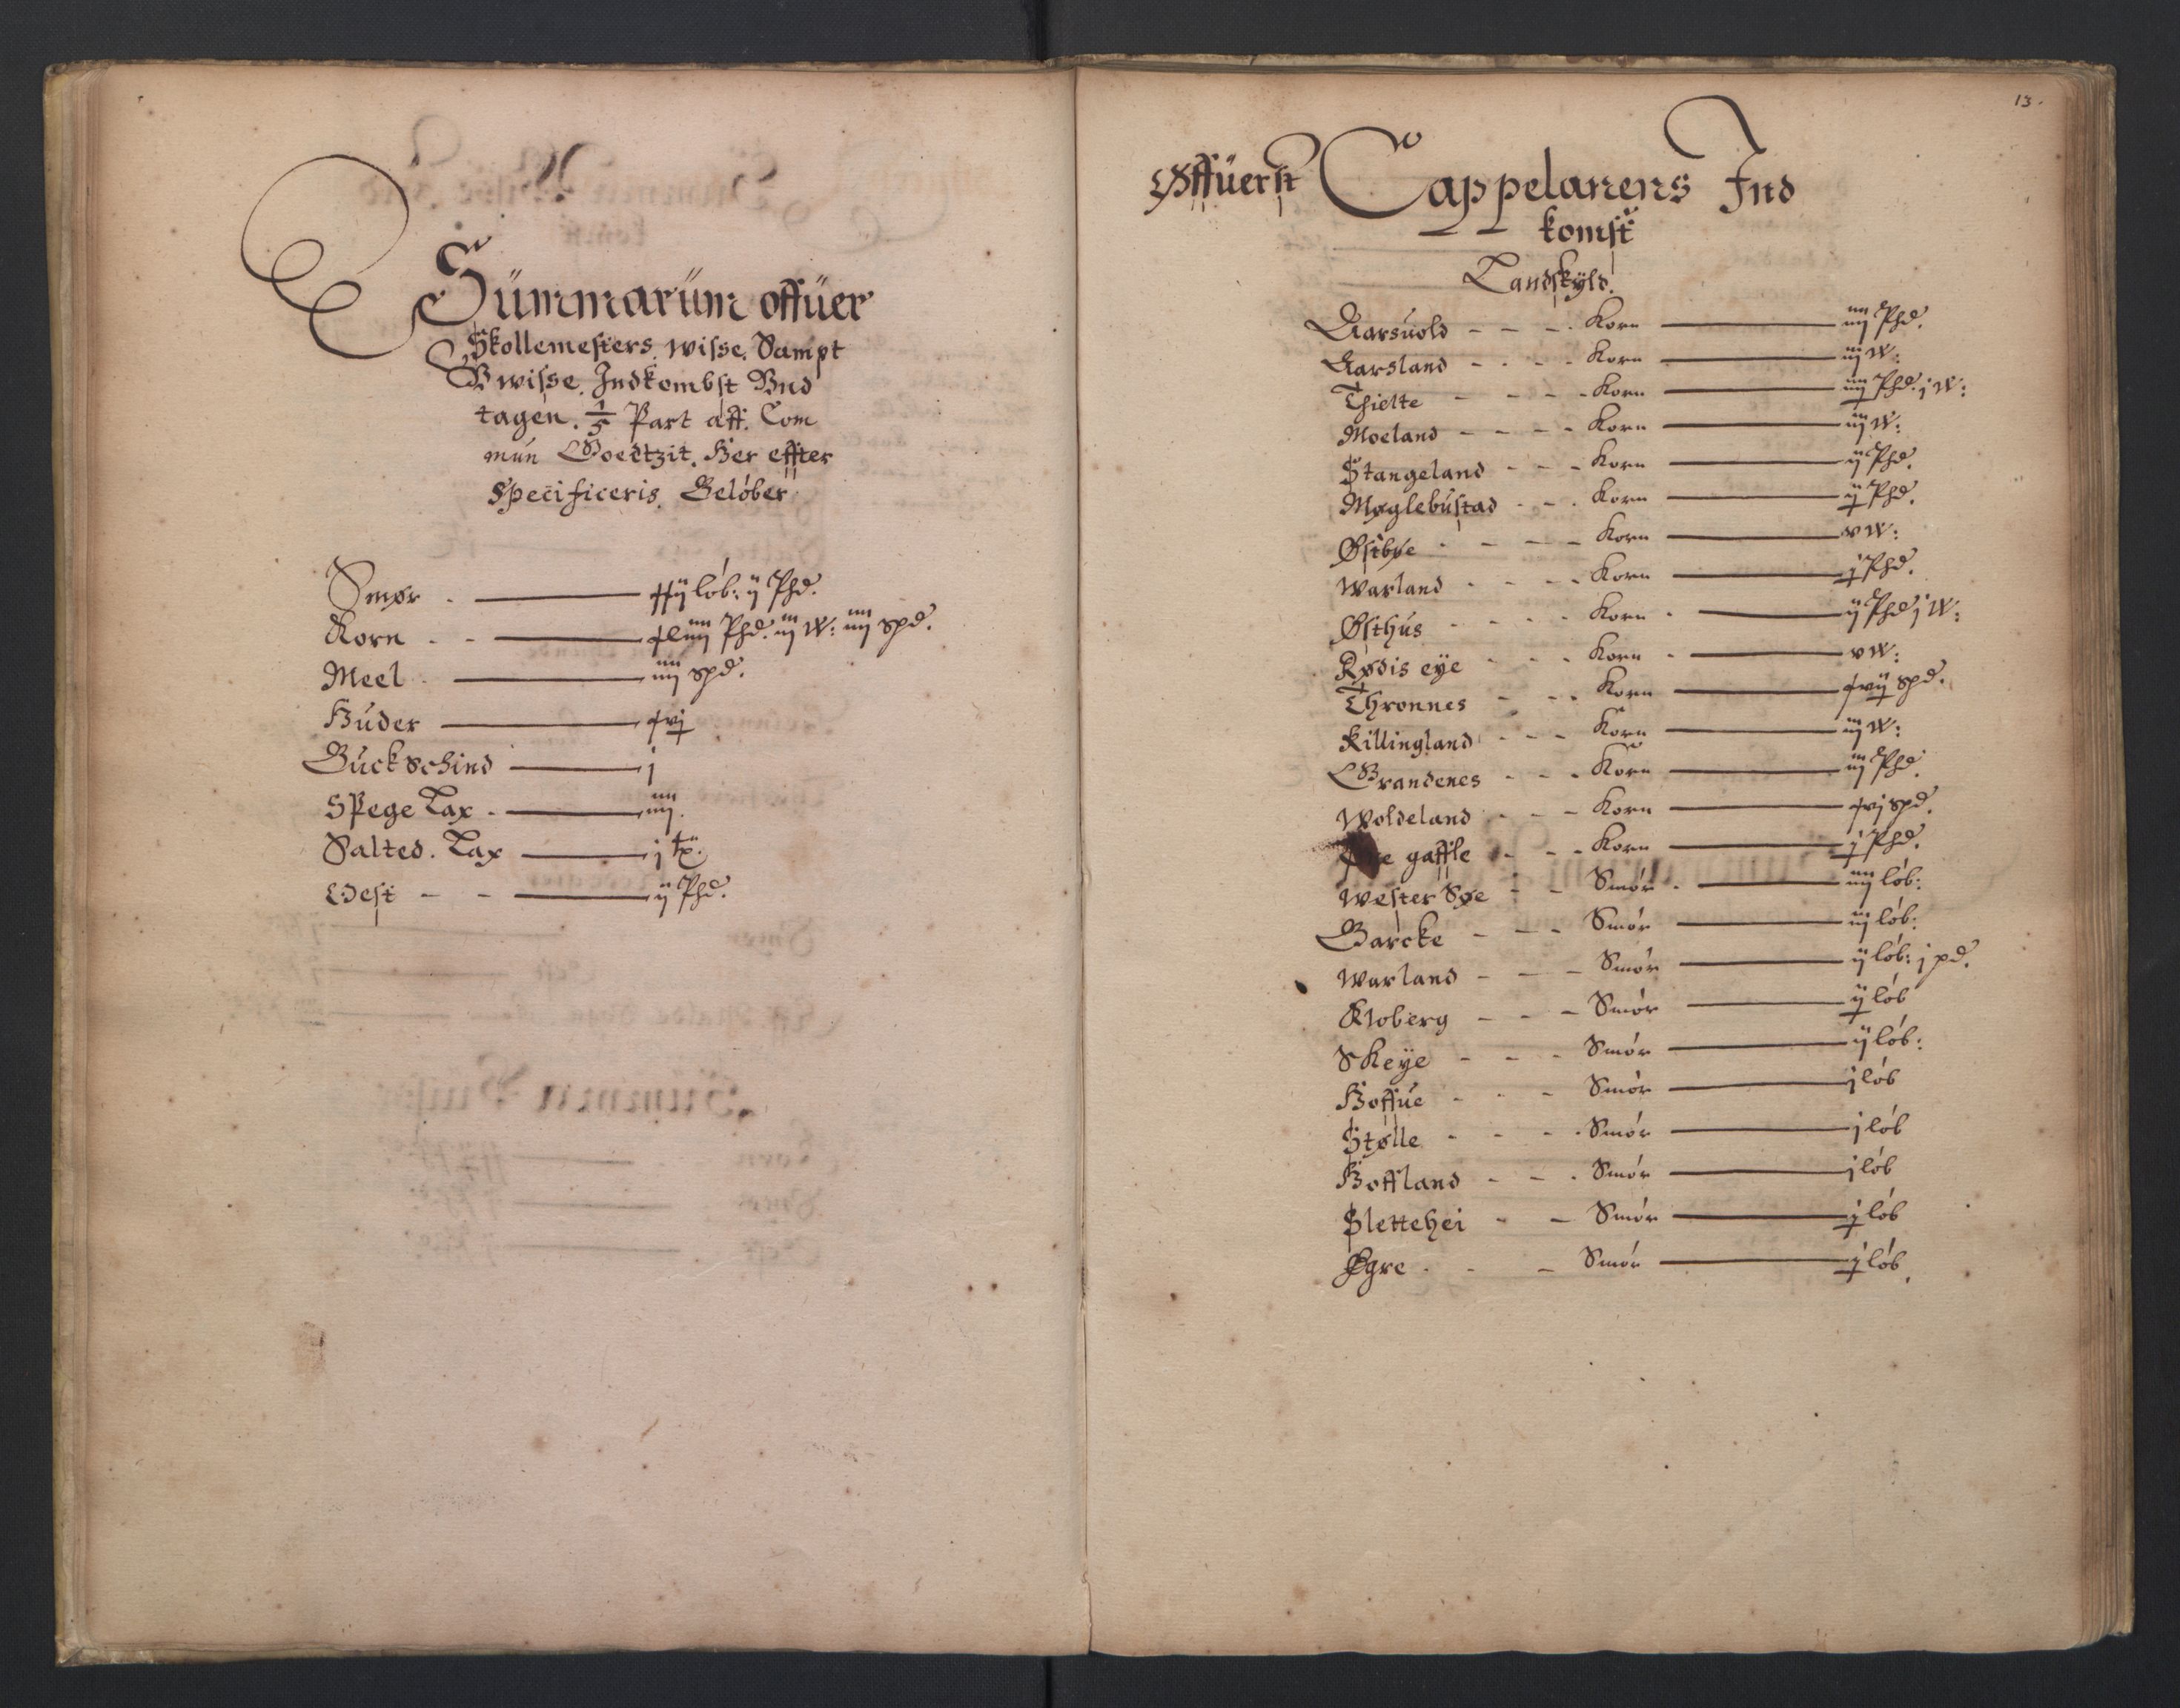 Sümmarüm offüer
Skollemesters. wisse. Sampt
Vwisse. Indkombst Vnd
tagen. 1/5 Part aff. Com
mún Goedtzit. Her effter
Specificeris. Belóber
Smør - xxij lób: ij Phd.
Korn - - xliiij Phd. iij W: iiij spd.
Meel - iiij spd.
Húder xvj
Buckschind j
Spege Lax - iiij.
Salted. Lax j tø.
Oest - - ij Phd.
13.
Offüerst Cappelanens Ind
komst
Landskÿld.
Aarsuold - - - Korn iiij Phd.
Aarsland - - - - Korn iij W:
Thielte - - - - Korn iiij Phd. j W:
Moeland - - - - Korn iij W:
Stangeland - - - Korn ij Phd.
Møglebústad - - - Korn ij Phd.
Østbøe - - - - Korn v W:
Warland - - - - Korn j Phd.
Østhús - - - - Korn - ij Phd j W:
Rødis eÿe - - - Korn - v W:
Thronnes - - - Korn xvij spd.
Killingland - - - Korn iij W:
Brandenes - - - Korn iij Phd.
Woldeland - - - Korn xvj spd.
gaffle - - - Korn j Phd.
Wester Søe - - Smór - iiij lób:
Barcke - - - Smór iij lób:
Warland - - - Smór ij lób: j pd.
Kloberg - - - Smór ij lób
Skeÿe - - - Smór ij lób:
Hoffúe - - - Smór j lób
Stølle - - - Smór j lób
Hoffland - - - Smór j lób
Slettehei - - Smór j lób
Egre - - - Smór j lób